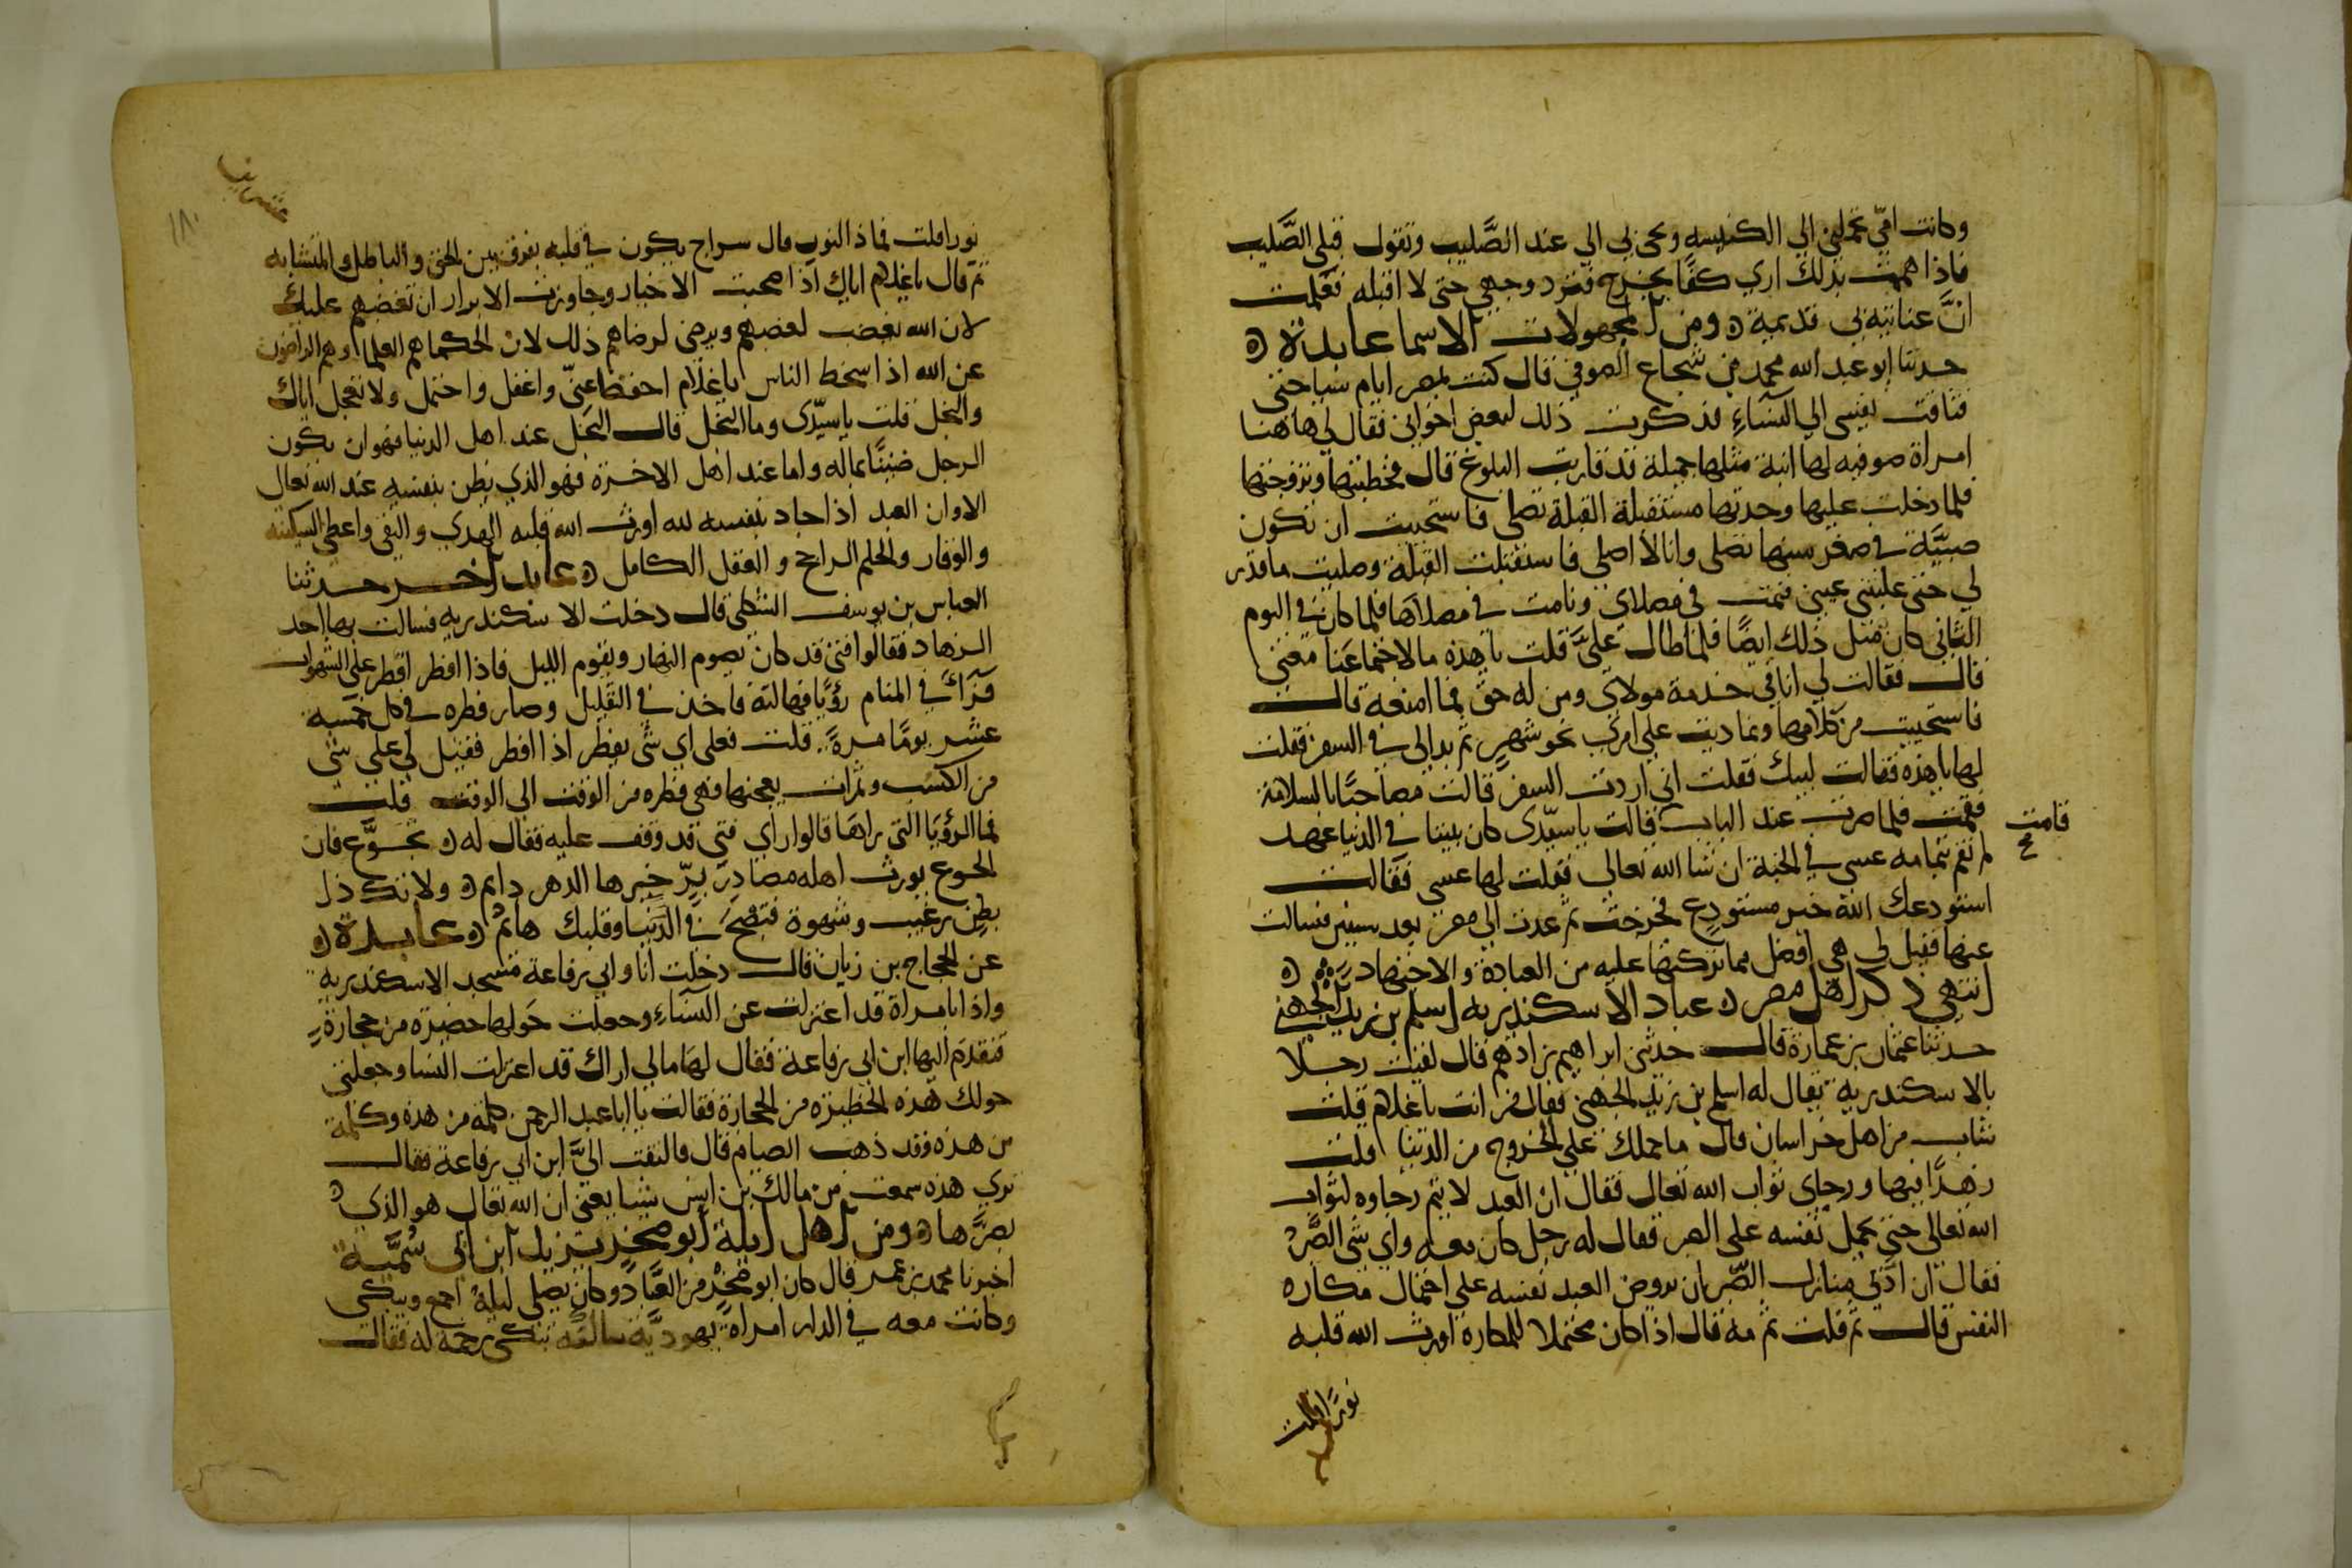 وكانت امي تحملني الي الكنيسه وتجي بي الي عند الصَّليب وتقول قبلي الصَّليب
فاذا هممت بذلك اري كفًا يخرج فترد وجهي حتي لا اقبله فعلمت
انَّ عنايته بي قديمة ومن المجهولات الاسما عابدة
حدثنا ابو عبد الله محمد بن شجاع الصوفي قال كنت بمصر ايام سياحتي
فتاقت نفسي الي النساء فذكرت ذلك لبعض اخواني فقال لي هاهنا
امراة صوفيه لها ابنة مثلها جميلة قد قاربت البلوغ قال فخطبتها وتزوجتها
فلما دخلت عليها وجدتها مستقبلة القبلة تصلي فاستحييت ان تكون
صبيَّة في صغر سنها تصلي وانا لا اصلي فاستقبلت القبلة وصليت ما قدر
لي حتي غلبتني عيني فنمت في مصلاي ونامت في مصلاها فلما كان في اليوم
الثاني كان مثل ذلك ايضًا فلما طال عليَّ قلت يا هذه ما لاجتماعنا معني
قال فقالت لي انا في خدمة مولاي ومن له حق فما امنعه قال
فاستحييت من كلامها وتماديت علي امري نحو شهر ثم بدا لي في السفر فقلت
لها يا هذه فقالت لبيك فقلت اني اردت السفر قالت مصاحبًا بالسلامة
فقمت فلما صرت عند الباب قالت يا سيّدي كان بيننا في الدنيا عهد
قامت صح
لم نقم بتمامه عسي في الجنة ان شا الله تعالي فقلت لها عسي فقالت
استودعك الله خير مستودع فخرجت ثم عدت الي مصر بعد سنين فسالت
عنها فقيل لي هي افضل مما تركتها عليه من العبادة والاجتهاد
انتهي ذكر اهل مصر عباد الاسكندريه اسلم بن زيد الجهني
حدثنا عثمان بن عمارة قال حدثني ابراهيم بن ادهم قال لقيت رجلا
بالاسكندرية يقال له اسلم بن زيد الجهني فقال من انت يا غلام قلت
شاب من اهل خراسان قال ما حملك علي الخروج من الدنيا قلت
زهدًا فيها ورجاي ثواب الله تعالي فقال ان العبد لا يتم رجاوه لثواب
الله تعالي حتي يحمل نفسه علي الصبر فقال له رجل كان معه واي شي الصَّبر
فقال ان ادني منازل الصّبر ان يروض العبد نفسه علي احتمال مكاره
النفس قال ثم قلت ثم مه قال اذا كان محتملا للمكاره اورث الله قلبه
نورًا قلت
١٨٠
نورا قلت فماذا النور قال سراج يكون في قلبه يفرق بين الحق والباطل والمتشابه
ثم قال يا غلام اياك اذا صحبت الاخيار وجاورت الابرار ان تغضبهم عليك
لان الله يغضب لغضبهم ويرضي لرضاهم ذلك لان الحكما هم العلما وهم الراضون
عن الله اذا سخط الناس يا غلام احفظ عنّي واعقل واحتمل ولا تعجل اياك
والبخل قلت يا سيّدي وما البخل قال البخل عند اهل الدنيا فهو ان يكون
الرجل ضنينًا بماله واما عند اهل الاخرة فهو الذي يظن بنفسه عند الله تعالي
الا وان العبد اذا جاد بنفسه لله اورث الله قلبه الهدي والتقي واعطي السكينه
والوقار والحلم الراجح والعقل الكامل عابد آخر حدثنا
العباس بن يوسف الشكلي قال دخلت الاسكندريه فسالت بها احد
الزهاد فقالوا فتي قد كان يصوم النهار ويقوم الليل فاذا افطر افطر علي الشهوات
فرآي في المنام رؤيًا فهالته فاخذ في القليل وصار فطره في كل خمسة
عشر يومًا مرةً قلت فعلي اي شي يفطر اذا افطر فقيل لي علي شي
من الكسب وتمرات يعجنها فهي فطره من الوقت الي الوقت قلت
فما الرؤيا التي راها قالوا راي فتي قد وقف عليه فقال له تجوَّع فان
الجوع يورث اهله مصادر برّ خيرها الدهر دايم ولا تك ذا
بطن رغيب وشهوة فتصبح في الدنيا وقلبك هايم عابدة
عن الحجاج بن زيان قال دخلت انا وابي رفاعة مسجد الاسكندرية
واذا بامراة قد اعتزلت عن النساء وجعلت حولها حضيره من حجارة
فتقدم اليها ابن ابي رفاعة فقال لها مالي اراك قد اعتزلت النسا وجعلتي
حولك هذه الحظيره من الحجارة فقالت يا ابا عبد الرحمن كلمة من هذه وكلمة
من هذه وقد ذهب الصيام قال فالتفت اليَّ ابن ابي رفاعة فقال
تري هذه سمعت من مالك بن انس شيا يعني ان الله تعالي هو الذي
بصرَّها ومن اهل ايلة ابو صخر يزيد ابن ابي سُميَّة
اخبرنا محمد بن عمر قال كان ابو صخر من العبَّاد وكان يصلي ليلهُ اجمع ويبكي
وكانت معه في الدار امراة يهوديّة تبكي رحمة له فقالت